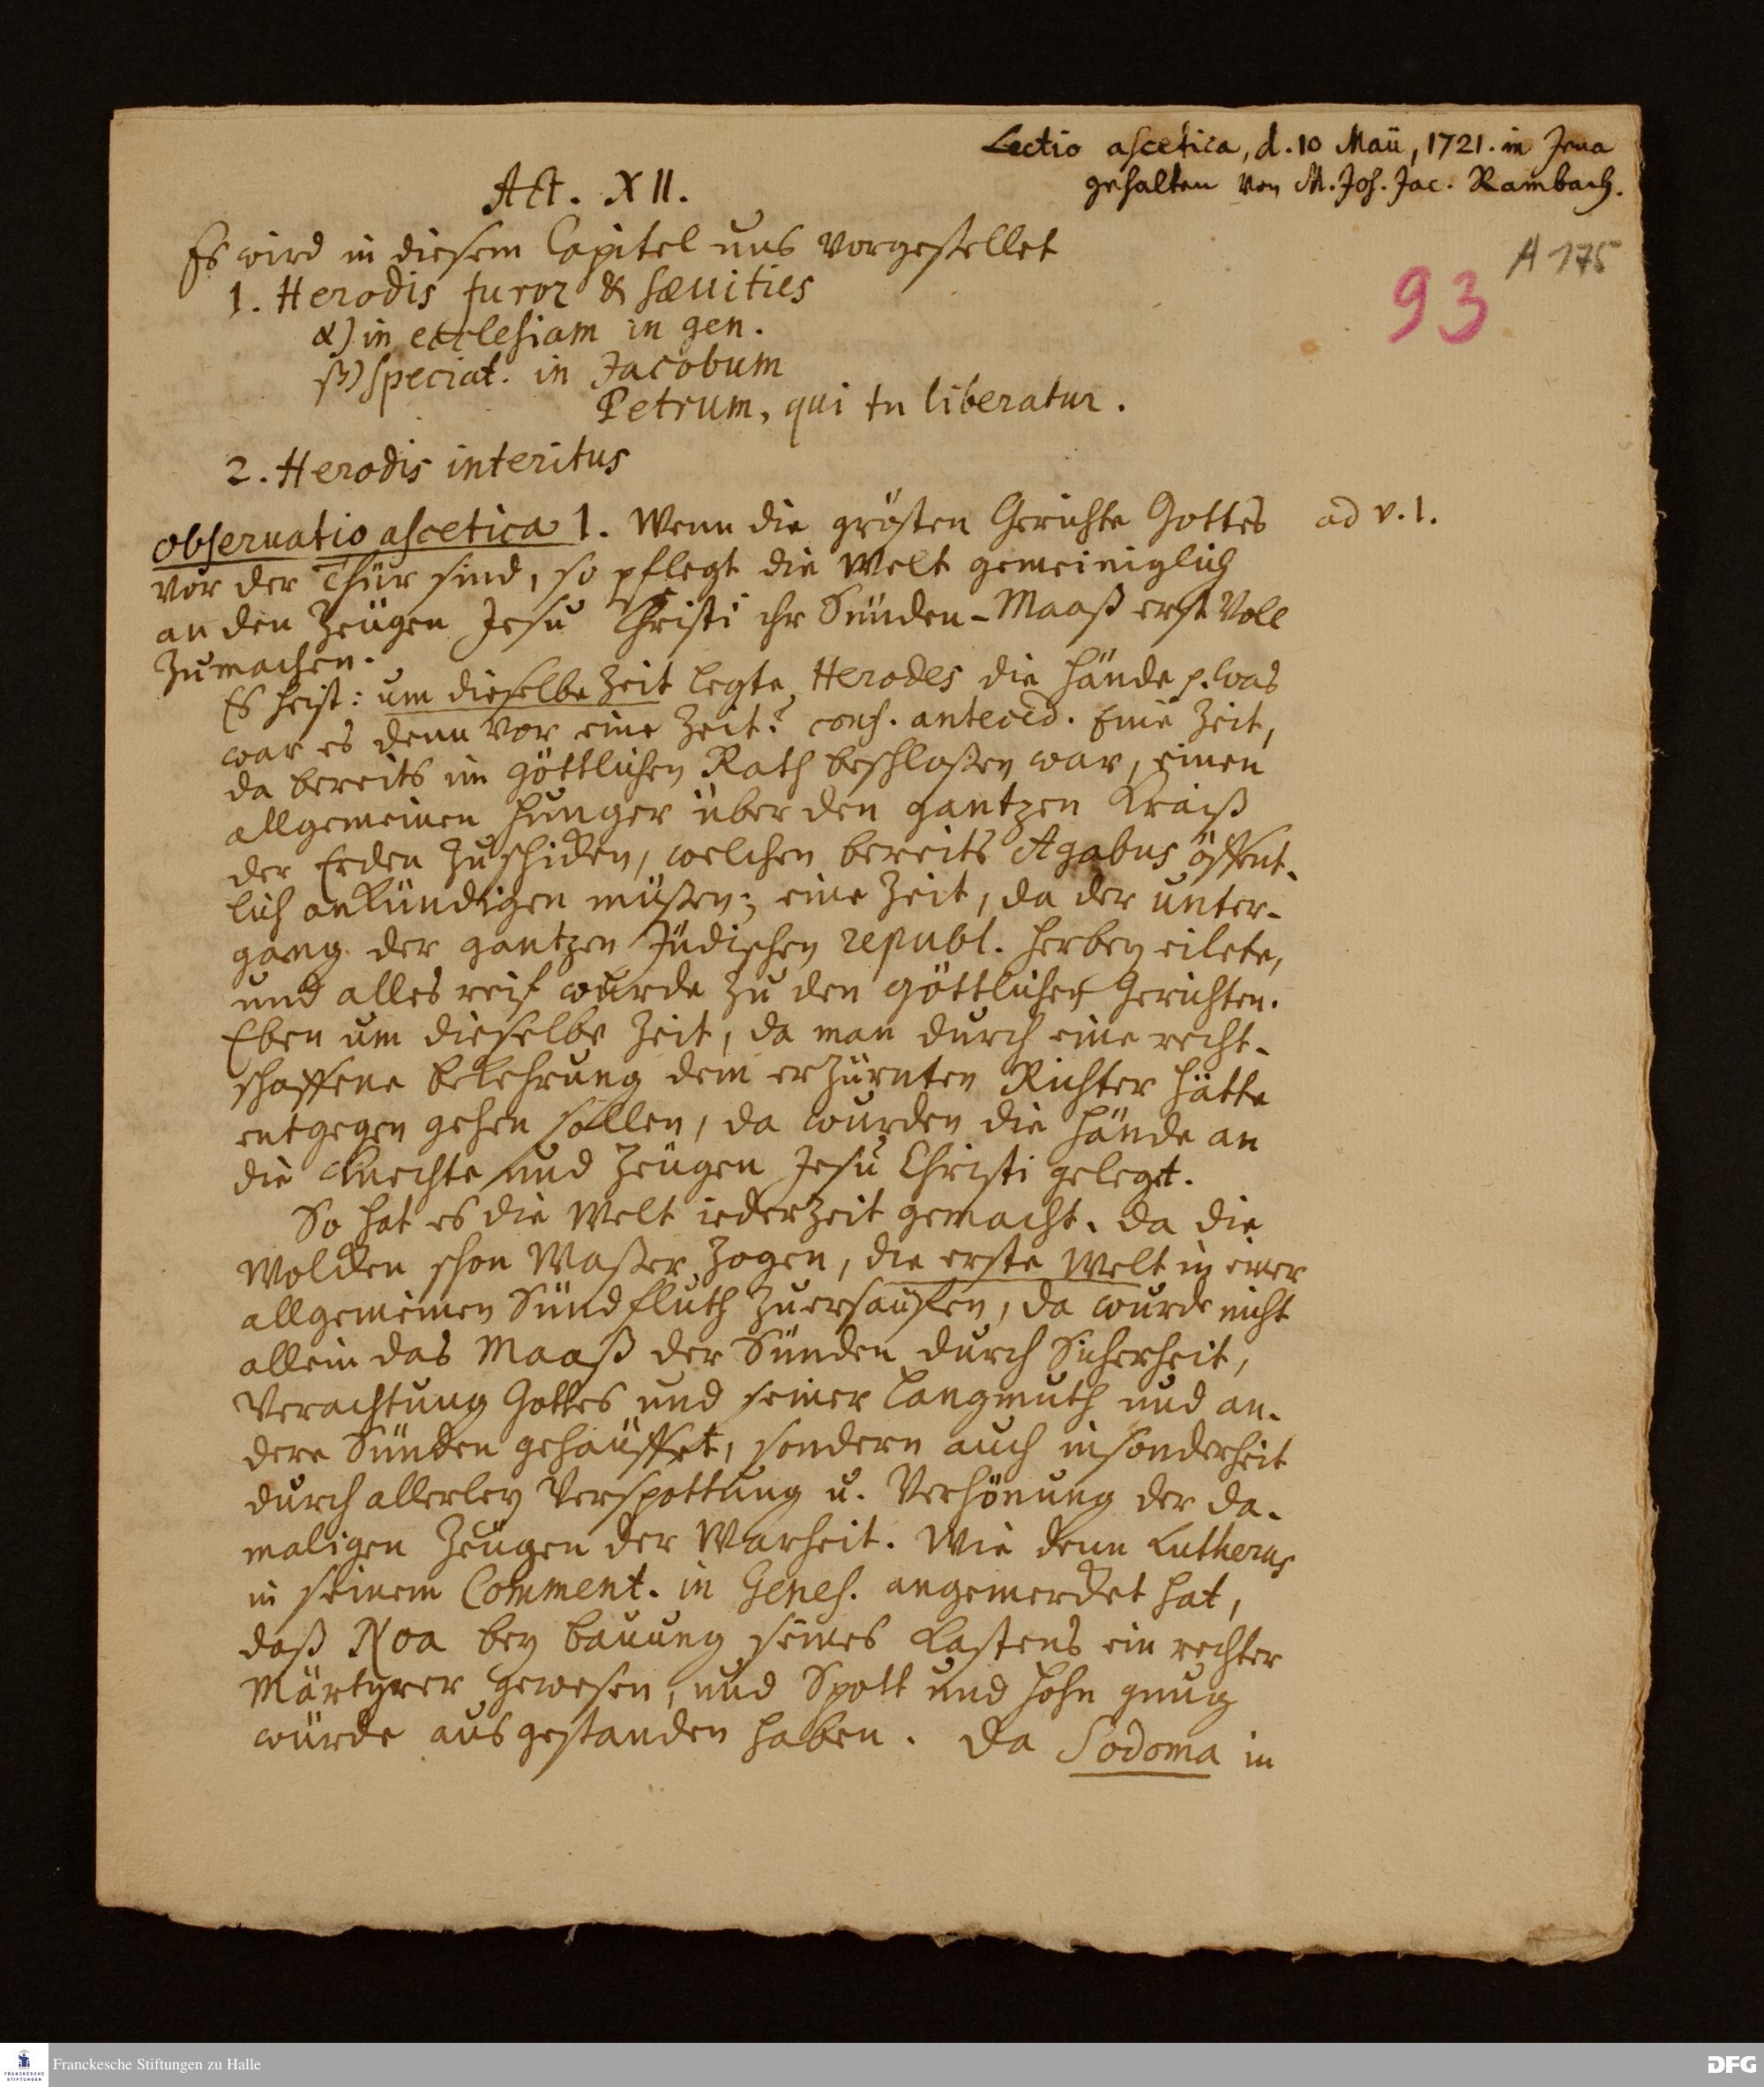 Lectio ascetica, d. 10 Maii, 1721. in Jena
gehalten von M. Joh. Jac. Rambach.
A 175
93
Act. XII.
Es wird in diesem Capitel uns vorgestellet
1. Herodis furor & sæuities
α) in ecclesiam in gen.
β) speciat. in Jacobum
Petrum, qui tn liberatur.
2. Herodis interitus
obseruatio ascetica 1. Wenn die grösten Gerichte Gottes
ad v. 1.
vor der Thür sind, so pflegt die Welt gemeiniglich
an den Zeügen Jesu Christi ihr Sünden-Maaß erst voll
zumachen.
Es heist: um dieselbe Zeit legte Herodes die Hände p. was
war es denn vor eine Zeit? conf. anteced. Eine Zeit,
da bereits im göttlichen Rath beschloßen war, einen
allgemeinen Hunger über den gantzen Kraiß
der Erden zuschicken, welchen bereits Agabus öffent-
lich ankündigen müßen; eine Zeit, da der unter-
gang der gantzen Jüdischen republ. herbey eilete,
und alles reif wurde zu den göttlichen Gerichten.
Eben um dieselbe Zeit, da man durch eine recht-
schaffene bekehrung dem erzürnten Richter hätte
entgegen gehen sollen, da wurden die Hände an
die Knechte und Zeügen Jesu Christi geleget.
So hat es die Welt iederzeit gemacht. Da die
Wolcken schon Waßer zogen, die erste Welt in einer
allgemeinen Sündfluth zuersäufen, da wurde nicht
allein das Maaß der Sünden durch Sicherheit,
Verachtung Gottes und seiner Langmuth und an-
dere Sünden gehäuffet, sondern auch insonderheit
durch allerley Verspottung u. Verhönung der da-
maligen Zeügen der Warheit. Wie denn Lutherus
in seinem Comment. in Genes. angemercket hat,
daß Noa bey bauung seines Kastens ein rechter
Märtyrer gewesen, und Spott und Hohn gnug
würde ausgestanden haben. Da Sodoma in
Franckesche Stiftungen zu Halle
FRANCKESCHE
STIFTUNGEN
DFG